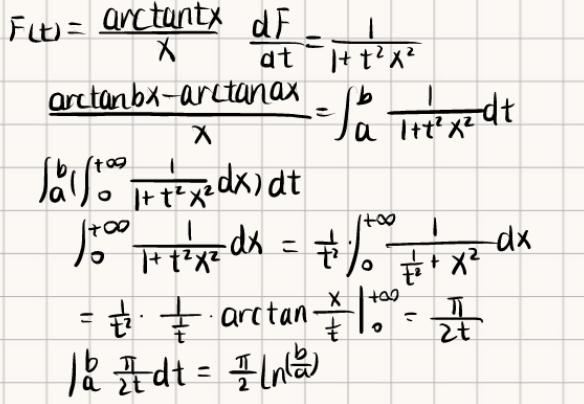 F(t) = \frac{arctantx}{x} \frac{dF}{dt} = \frac{1}{1+t²x²}
\frac{arctanbx-arctanax}{x} = \int_a^b \frac{1}{1+t²x²} dt
\int_a^b (\int_0^{+∞} \frac{1}{1+t²x²} dx) dt
\int_0^{+∞} \frac{1}{1+t²x²} dx = \frac{1}{t²} · \int_0^{+∞} \frac{1}{\frac{1}{t²} + x²} dx
= \frac{1}{t²} · \frac{1}{\frac{1}{t}} · arctan \frac{x}{\frac{1}{t}} |_0^{+∞} = \frac{π}{2t}
\int_a^b \frac{π}{2t} dt = \frac{π}{2} ln(\frac{b}{a})